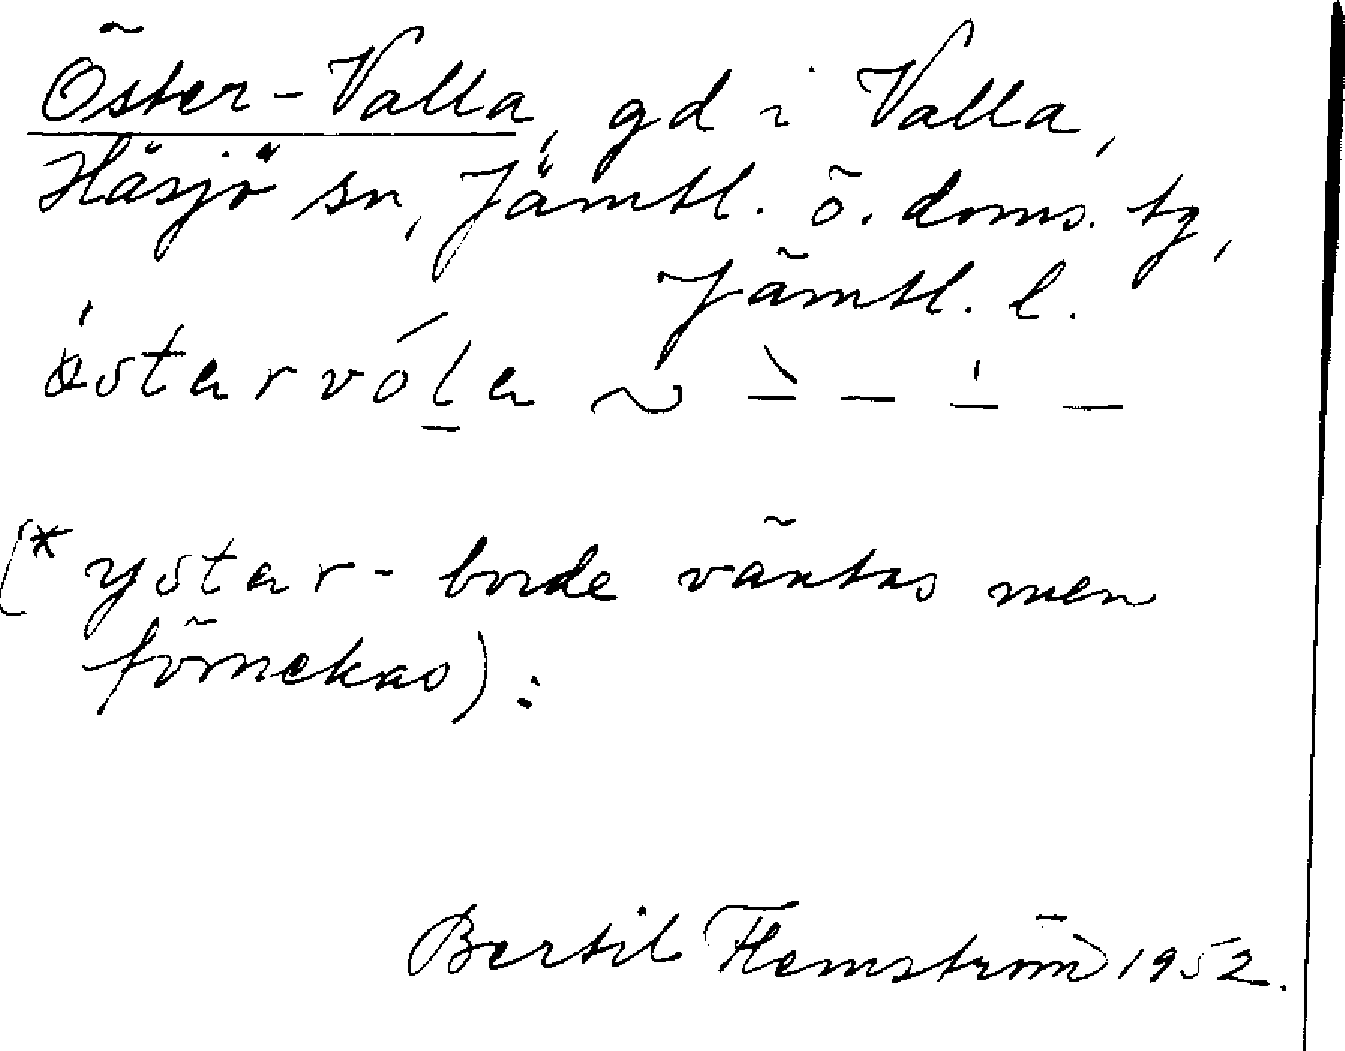 Öster-Valla, gd i Valla,
Häsjö sn, Jämtl. ö. doms. tg,
Jämtl. l.
östarvóla ~ ` – ' –
(* ystar- borde väntas men
förnekas):
Bertil Flemström 1952.